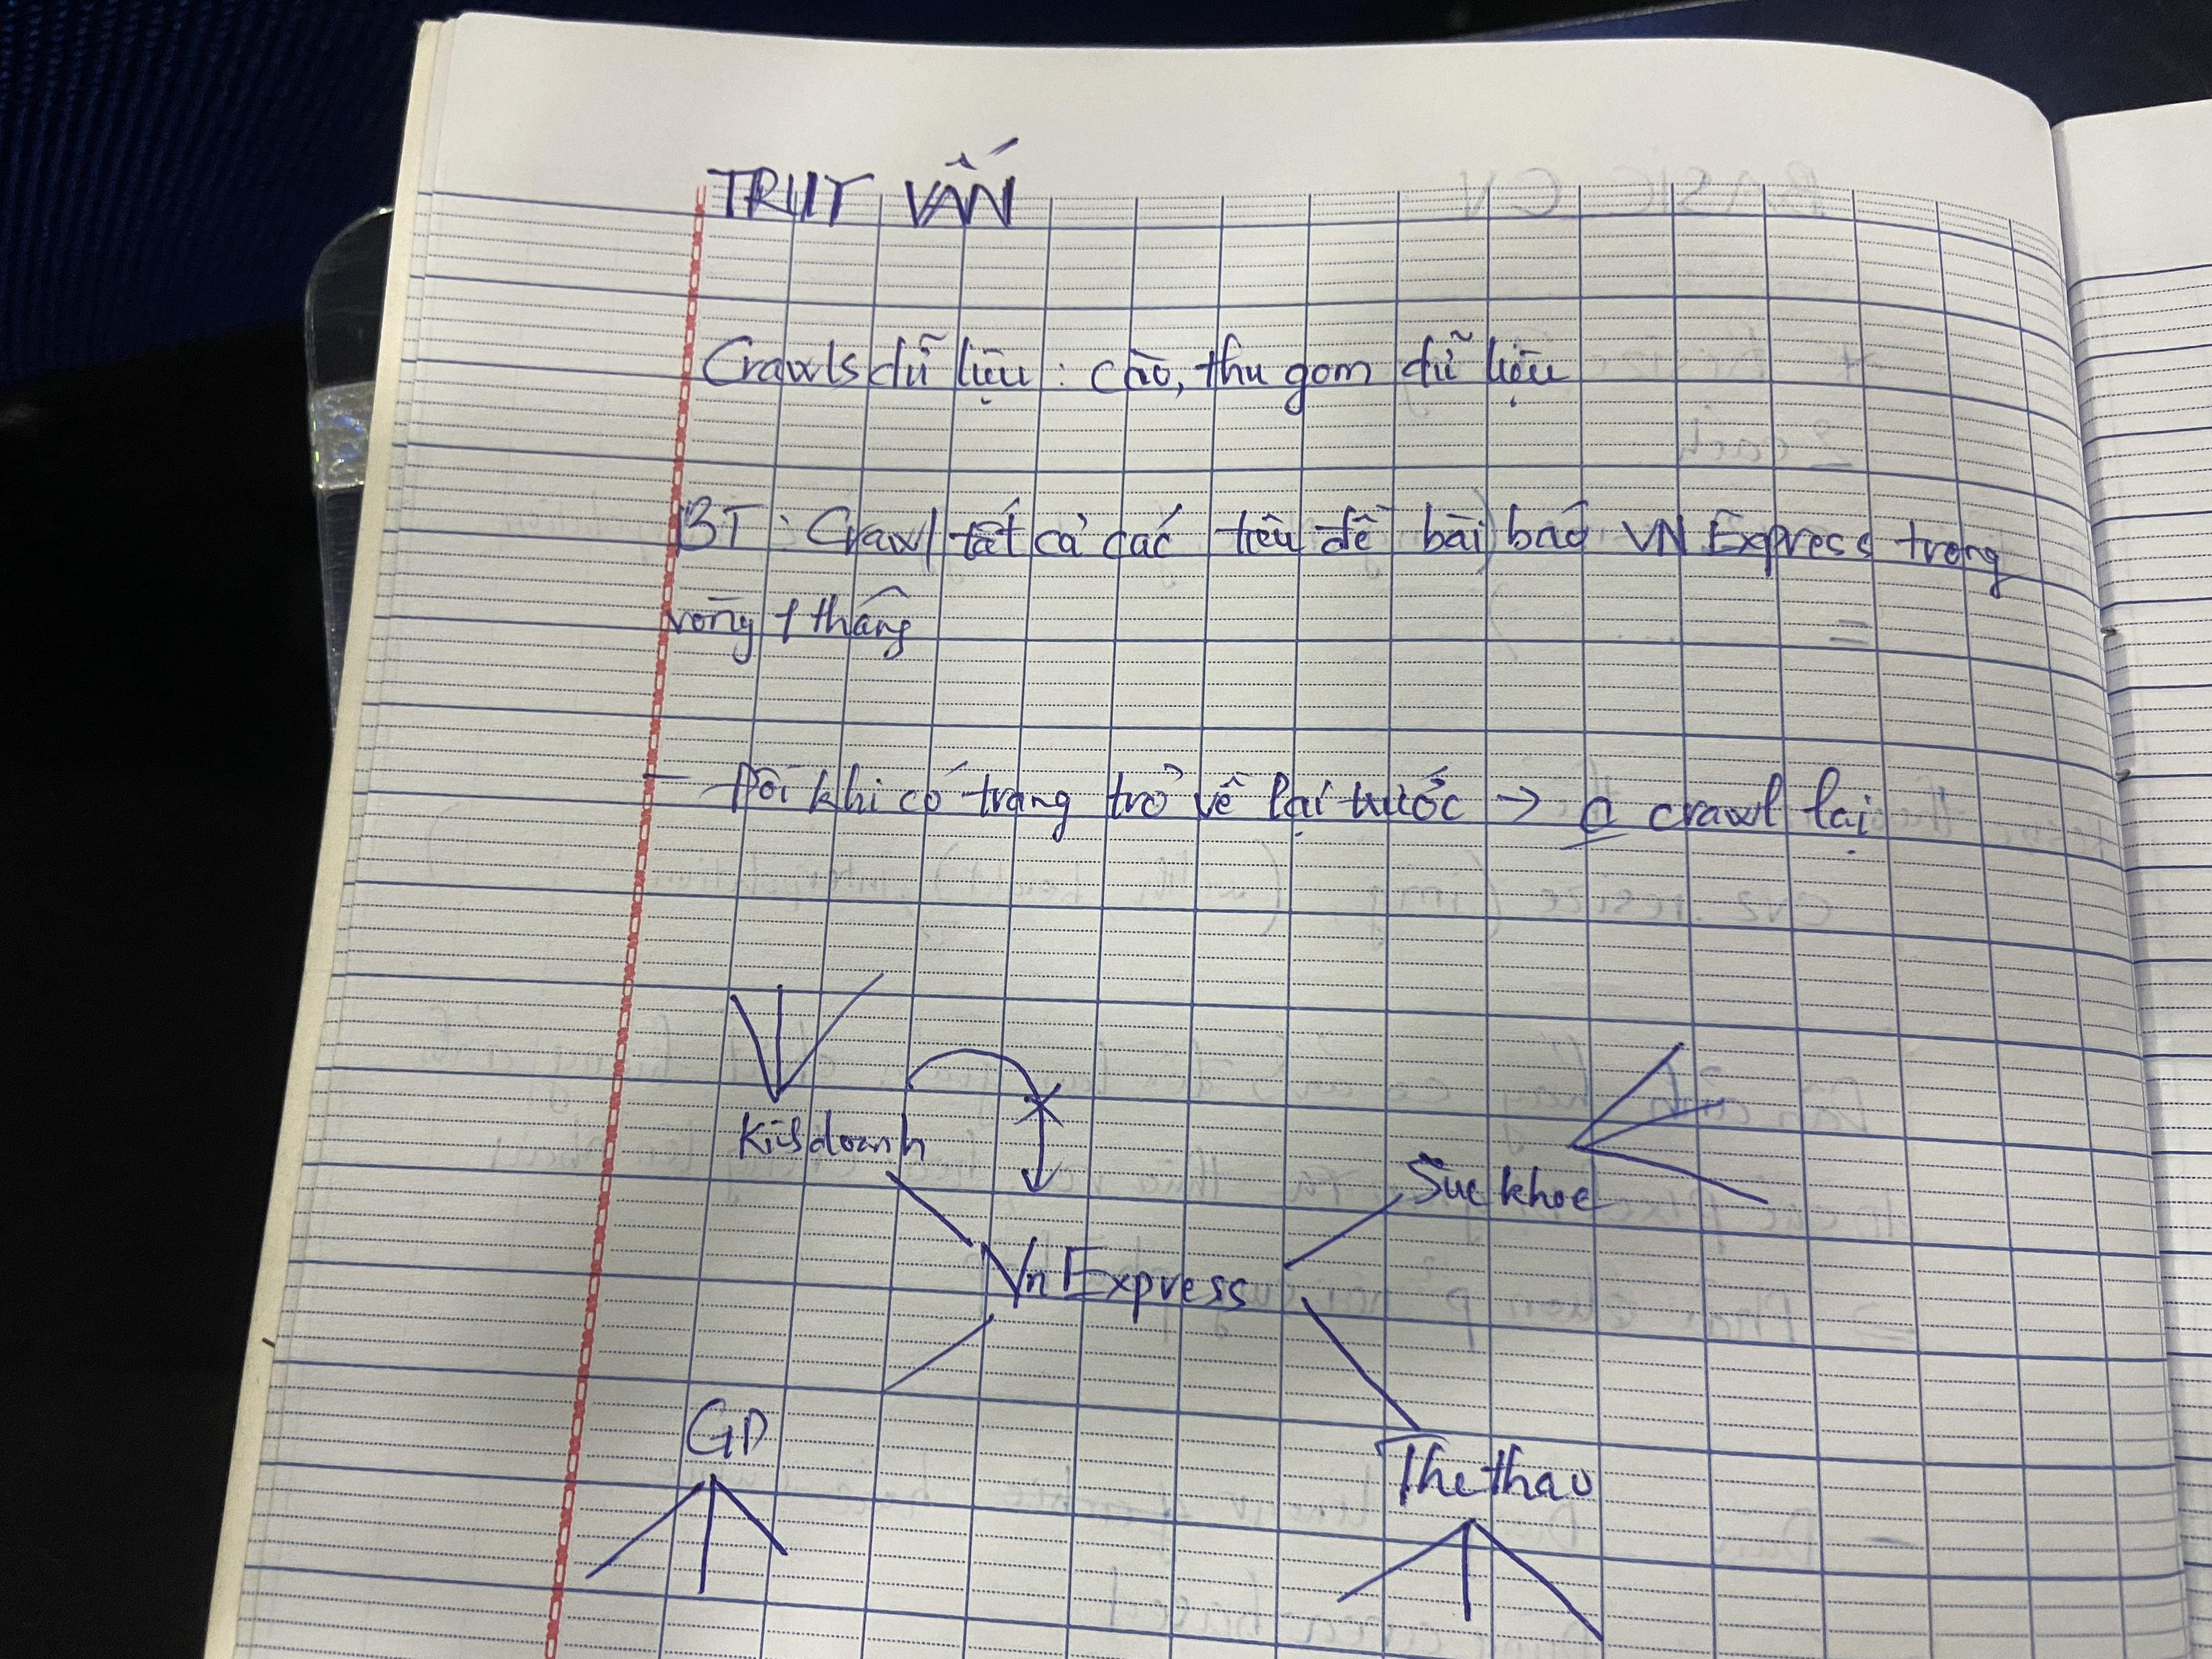 TRUY VẤN
Crawls dữ liệu : cào, thu gom dữ liệu
BT : Crawl tất cả các tiêu đề bài báo VN Express trong
vòng 1 tháng
- Đôi khi có trang trở về lại trước → crawl lại
Kinh doanh
Sức khoẻ
VnExpress
GD
Thể thao